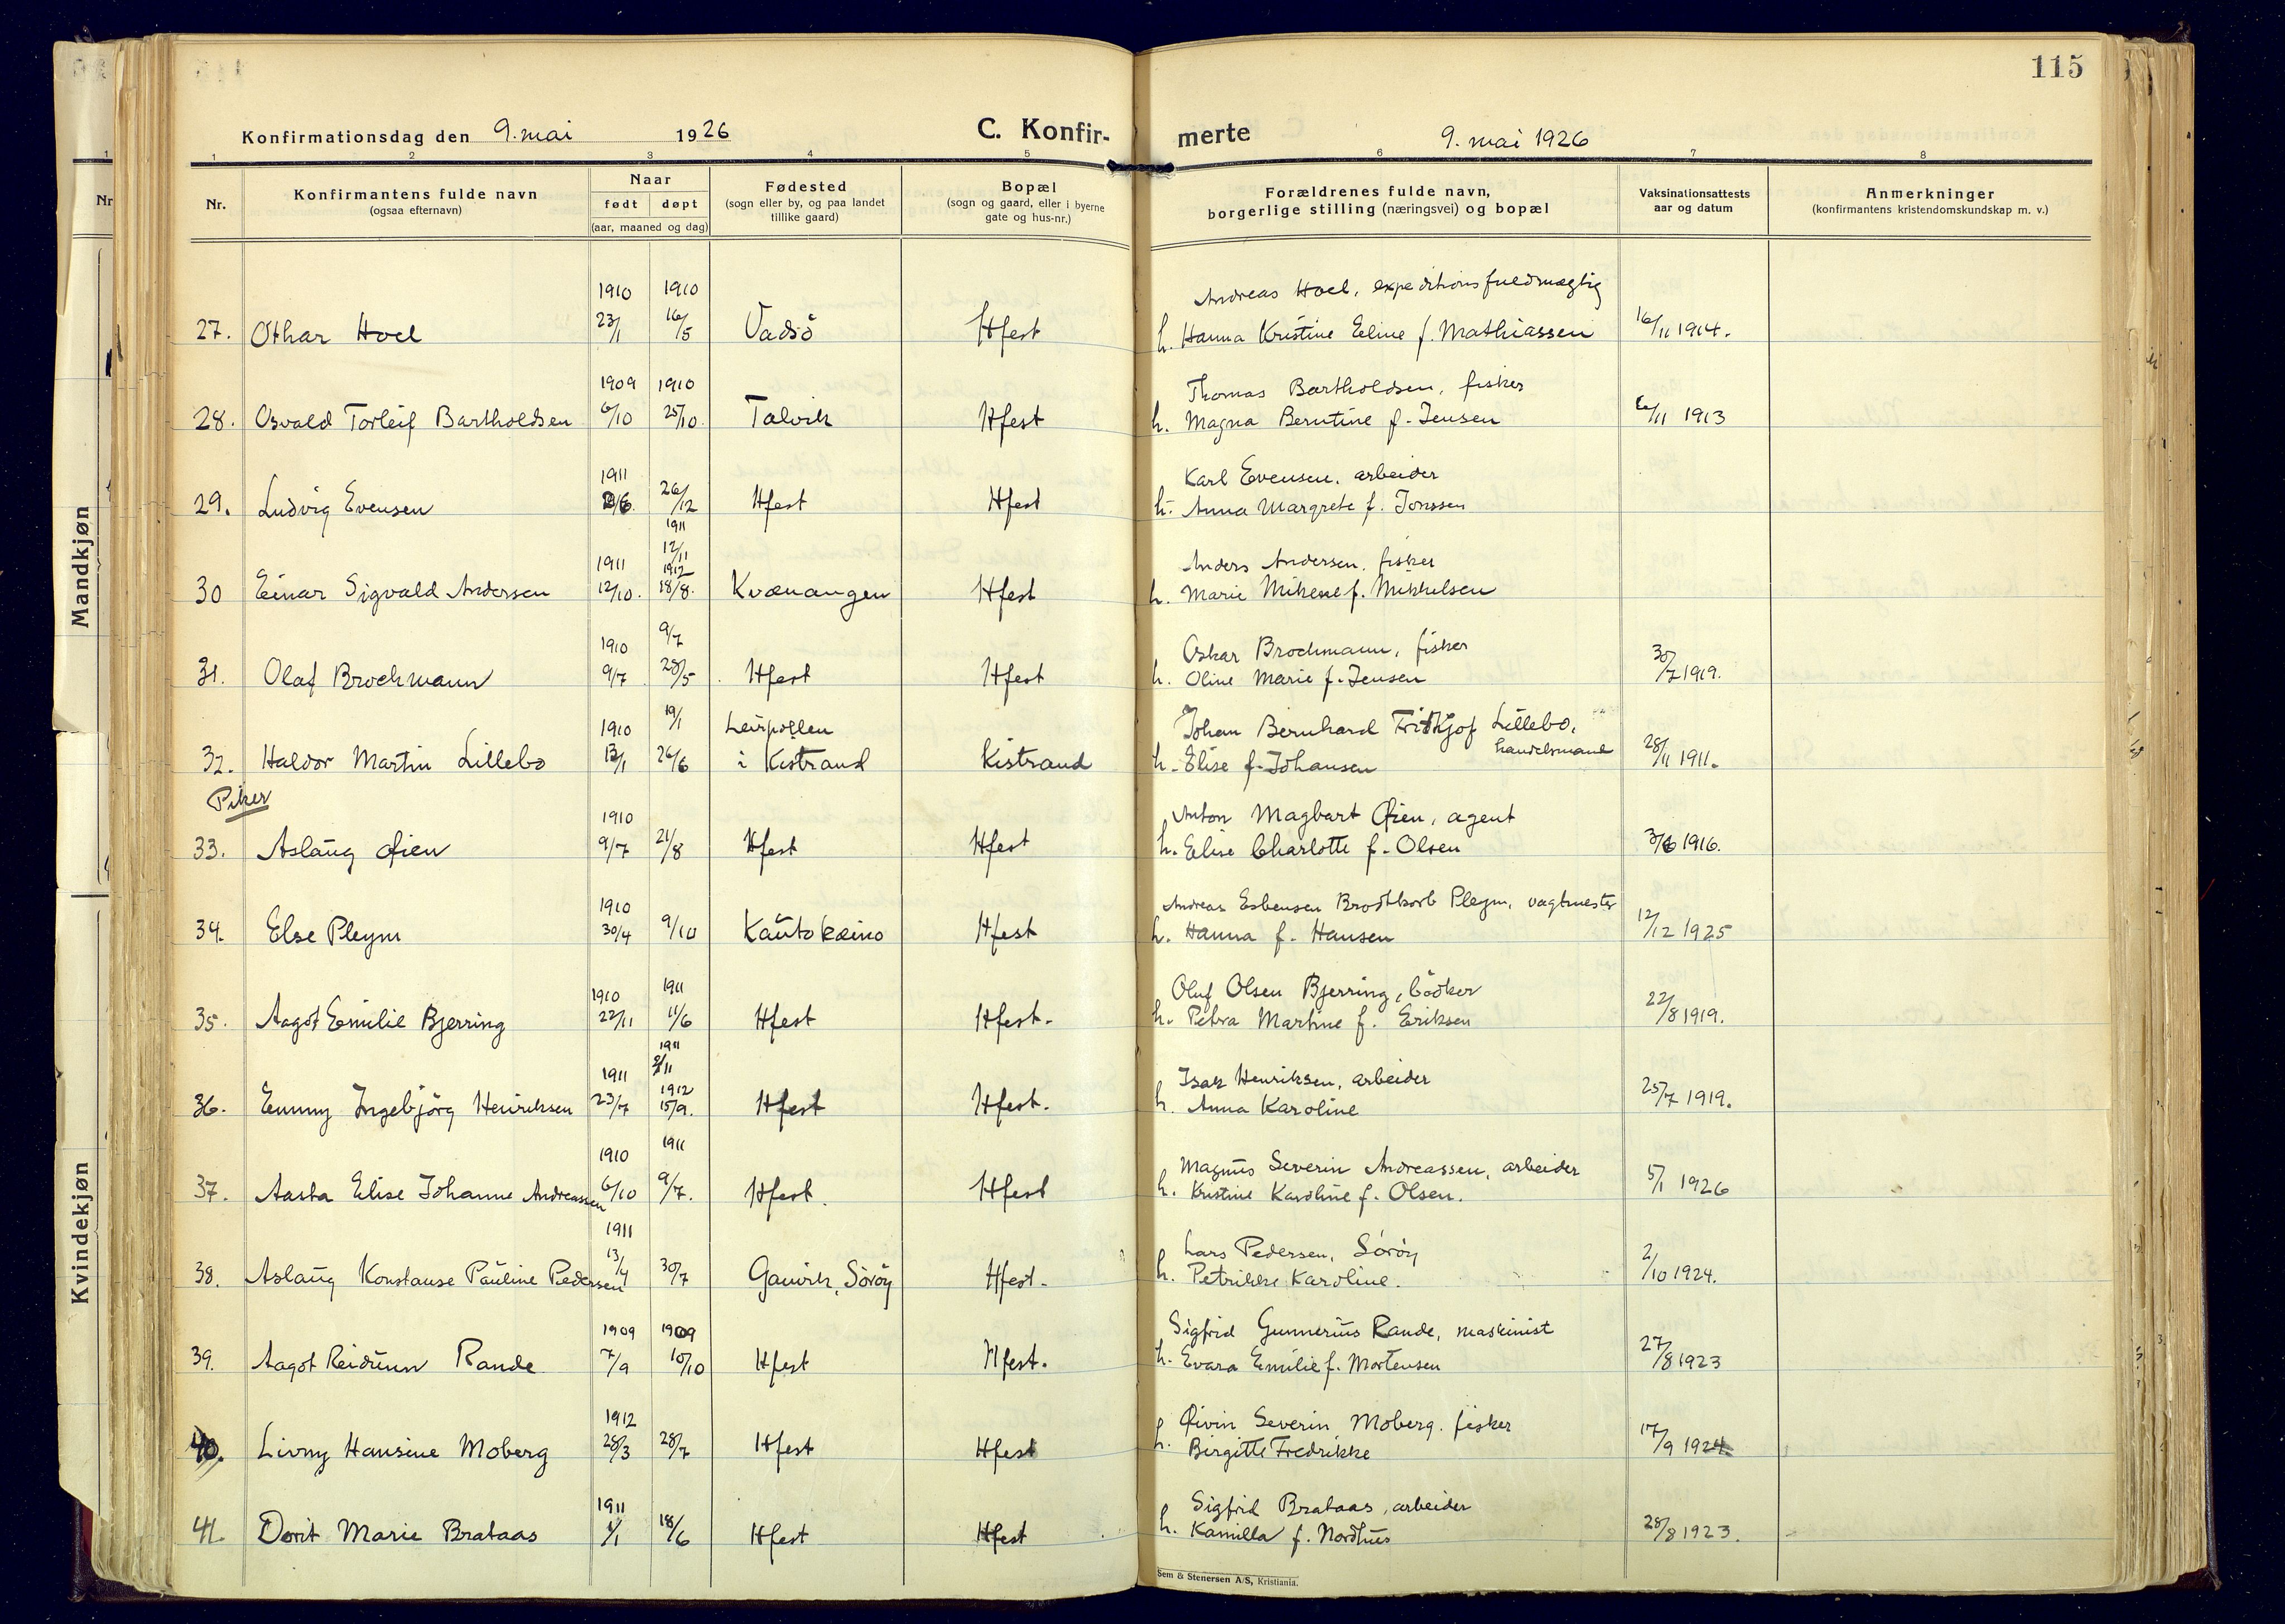 115
Konfirmationsdag den 9. mai 1926
C. Konfir-
merte
9. mai 1926
1 2 3 4 5 6 7 8
Nr.
Konfirmantens fulde navn
(ogsaa efternavn)
Naar
født døpt
(aar, maaned og dag)
Fødested
(sogn eller by, og paa landet
tillike gaard)
Bopæl
(sogn og gaard, eller i byerne
gate og hus-nr.)
Forældrenes fulde navn,
borgerlige stilling (næringsvei) og bopæl
Vaksinationsattests
aar og datum
Anmerkninger
(konfirmantens kristendomskundskap m. v.)
Mandkjøn
Kvindekjøn
1910 1910 Andreas Hoel, expeditionsfuldmægtig
27. Othar Hoel 23/1 16/5 Vadsö Hfest h. Hanna Kristine Eline f. Mathiassen 16/11 1914.
1909 1910 Thomas Bartholdsen, fisker
28. Osvald Torleif Bartholdsen 6/10 25/10. Talvik Hfest h. Magna Berntine f. Jensen 6/11 1913
1911 Karl Evensen, arbeider
29. Ludvig Evensen 26/12 Hfest Hfest h. Anna Margrete f. Jonssen
1911
12/11
1911 1912 Anders Andersen, fisker
30 Einar Sigvald Andersen 12/10. 18/8. Kvænangen Hfest h. Marie Mikene f. Mikkelsen
1910 9/7 Oskar Brochmann, fisker
31. Olaf Brochmann 9/7 28/5 Hfest Hfest h. Oline Marie f. Jensen 30/7 1919.
1910 19/1 Leirpollen Johan Bernhard Fridtjof Lillebo,
handelsmand
32. Haldor Martin Lillebo 13/1 26/6 i Kistrand Kistrand h. Elise f. Johansen 28/11 1911.
Piker
1910 Anton Magbart Øien, agent
33. Aslaug Øien 9/7 21/8 Hfest Hfest h. Elise Charlotte f. Olsen 3/6 1916.
1910 Andreas Esbensen Brodtkorb Pleym, vagtmester
34. Else Pleym 30/4 9/10 Kautokeino Hfest h. Hanna f. Hansen 12/12 1925
1910 1911 Oluf Olsen Bjerring, bödker
35. Aagot Emilie Bjerring 22/11 11/6 Hfest Hfest. h. Petra Martine f. Eriksen 22/8 1919.
1911
1911 1912 Isak Henriksen, arbeider
36. Emmy Ingebjörg Henriksen 23/7 15/9. Hfest Hfest. h. Anna Karoline 25/7 1919.
1910 1911 Magnus Severin Andreassen, arbeider
37. Aasta Elise Johanne Andreassen 6/10 9/7. Hfest. Hfest h. Kristine Karoline f. Olsen. 5/1 1926
1911 Lars Pedersen, Söröy
38. Aslaug Konstanse Pauline Pedersen 13/4 30/7 Gamvik, Söröy Hfest. h. Petrikke Karoline. 2/10 1924.
1909 1909 Sigfrid Gunnerius Rande, maskinist
39. Aagot Reidunn Rande 7/9 10/10 Hfest Hfest. h. Evara Emilie f. Mortensen 27/8 1923
1912 Øivin Severin Moberg. fisker
40. Livny Hansine Moberg 28/3 28/7 Hfest Hfest h. Birgitte Fredrikke 17/9 1924.
1911 Sigfrid Brataas, arbeider
41. Dorit Marie Brataas 1/1 18/6 Hfest Hfest h. Kamilla f. Nordhus 28/8 1923.
Sem & Stenersen A/S, Kristiania.